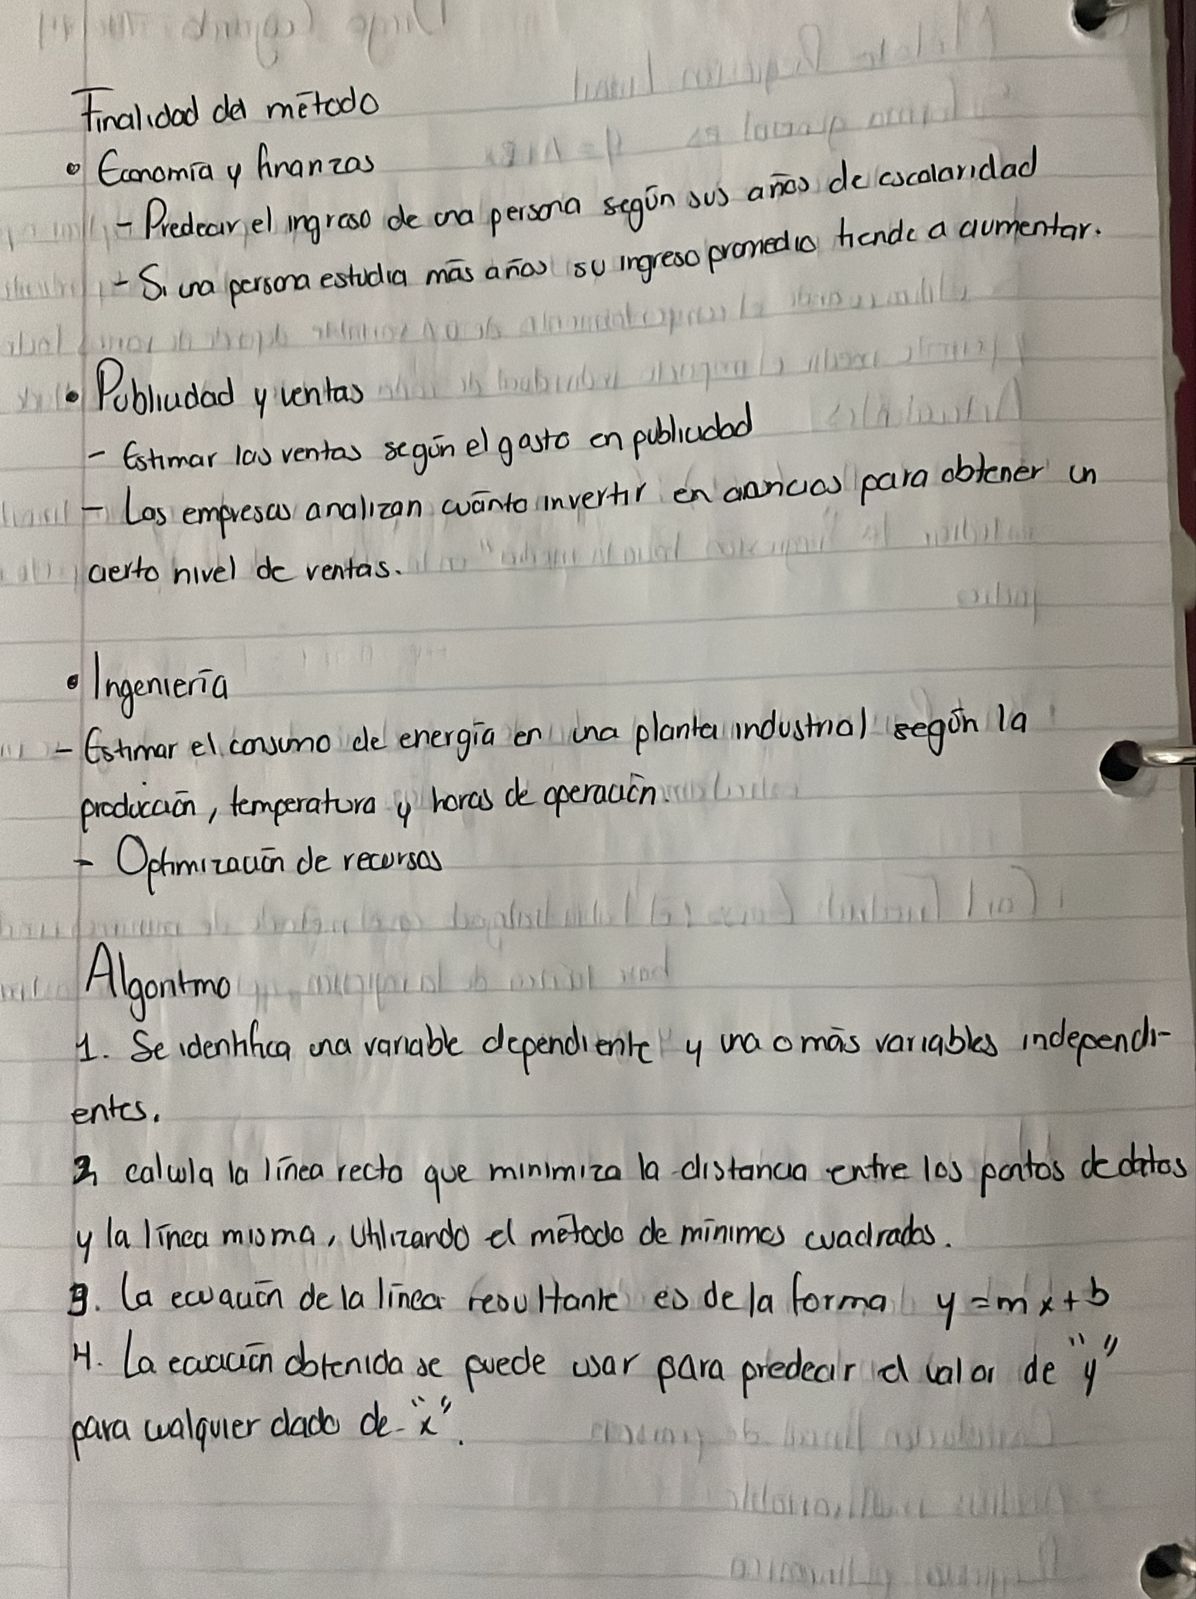 Finalidad del método
• Economía y finanzas
- Predecir el ingreso de una persona según sus años de escolaridad
- Si una persona estudia más años su ingreso promedio tiende a aumentar.
• Publicidad y ventas
- Estimar las ventas según el gasto en publicidad
- Las empresas analizan cuánto invertir en anuncios para obtener un
cierto nivel de ventas.
• Ingeniería
- Estimar el consumo de energía en una planta industrial según la
producción, temperatura y horas de operación.
- Optimización de recursos
Algoritmo
1. Se identifica una variable dependiente y una o más variables independi-
entes.
2. calcula la línea recta que minimiza la distancia entre los puntos de datos
y la línea misma, utilizando el método de mínimos cuadrados.
3. La ecuación de la línea resultante es de la forma y = mx + b
4. La ecuación obtenida se puede usar para predecir el valor de "y"
para cualquier dado de "x".